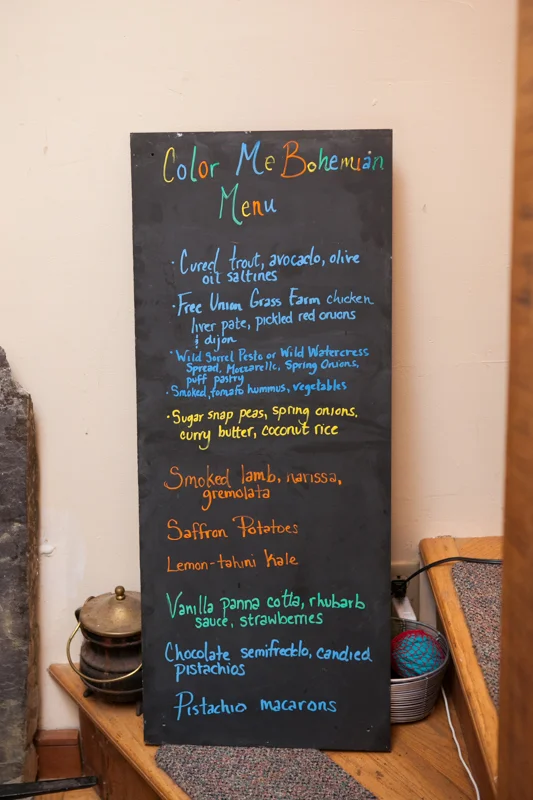 Color Me Bohemian
Menu
· Cured trout, avocado, olive
oil saltines
· Free Union Grass Farm chicken
liver pate, pickled red onions
& dijon
· Wild Sorrel Pesto or Wild Watercress
Spread, Mozzarella, Spring Onions,
puff pastry
· Smoked tomato hummus, vegetables
· Sugar snap peas, spring onions,
curry butter, coconut rice
Smoked lamb, harissa,
gremolata
Saffron Potatoes
Lemon-tahini Kale
Vanilla panna cotta, rhubarb
sauce, strawberries
Chocolate semifreddo, candied
pistachios
Pistachio macarons